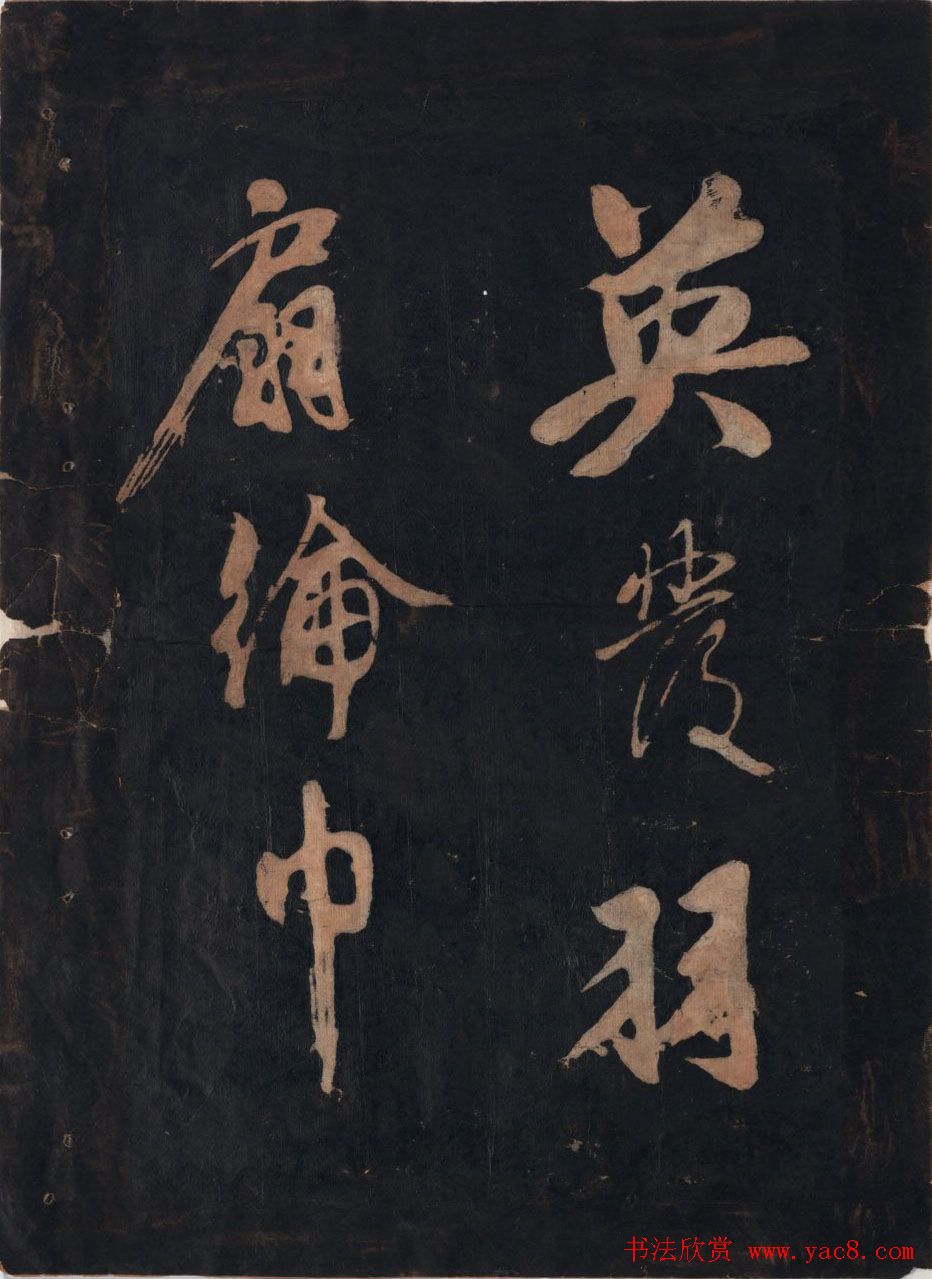 英發羽
扇綸巾
书法欣赏 www.yac8.com